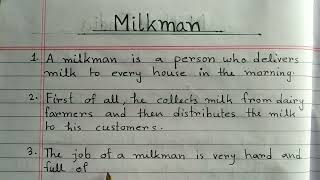 Milkman
1. A milkman is a person who delivers
milk to every house in the morning.
2. First of all, he collects milk from dairy
farmers and then distributes the milk
to his customers.
3. The job of a milkman is very hard and
full of